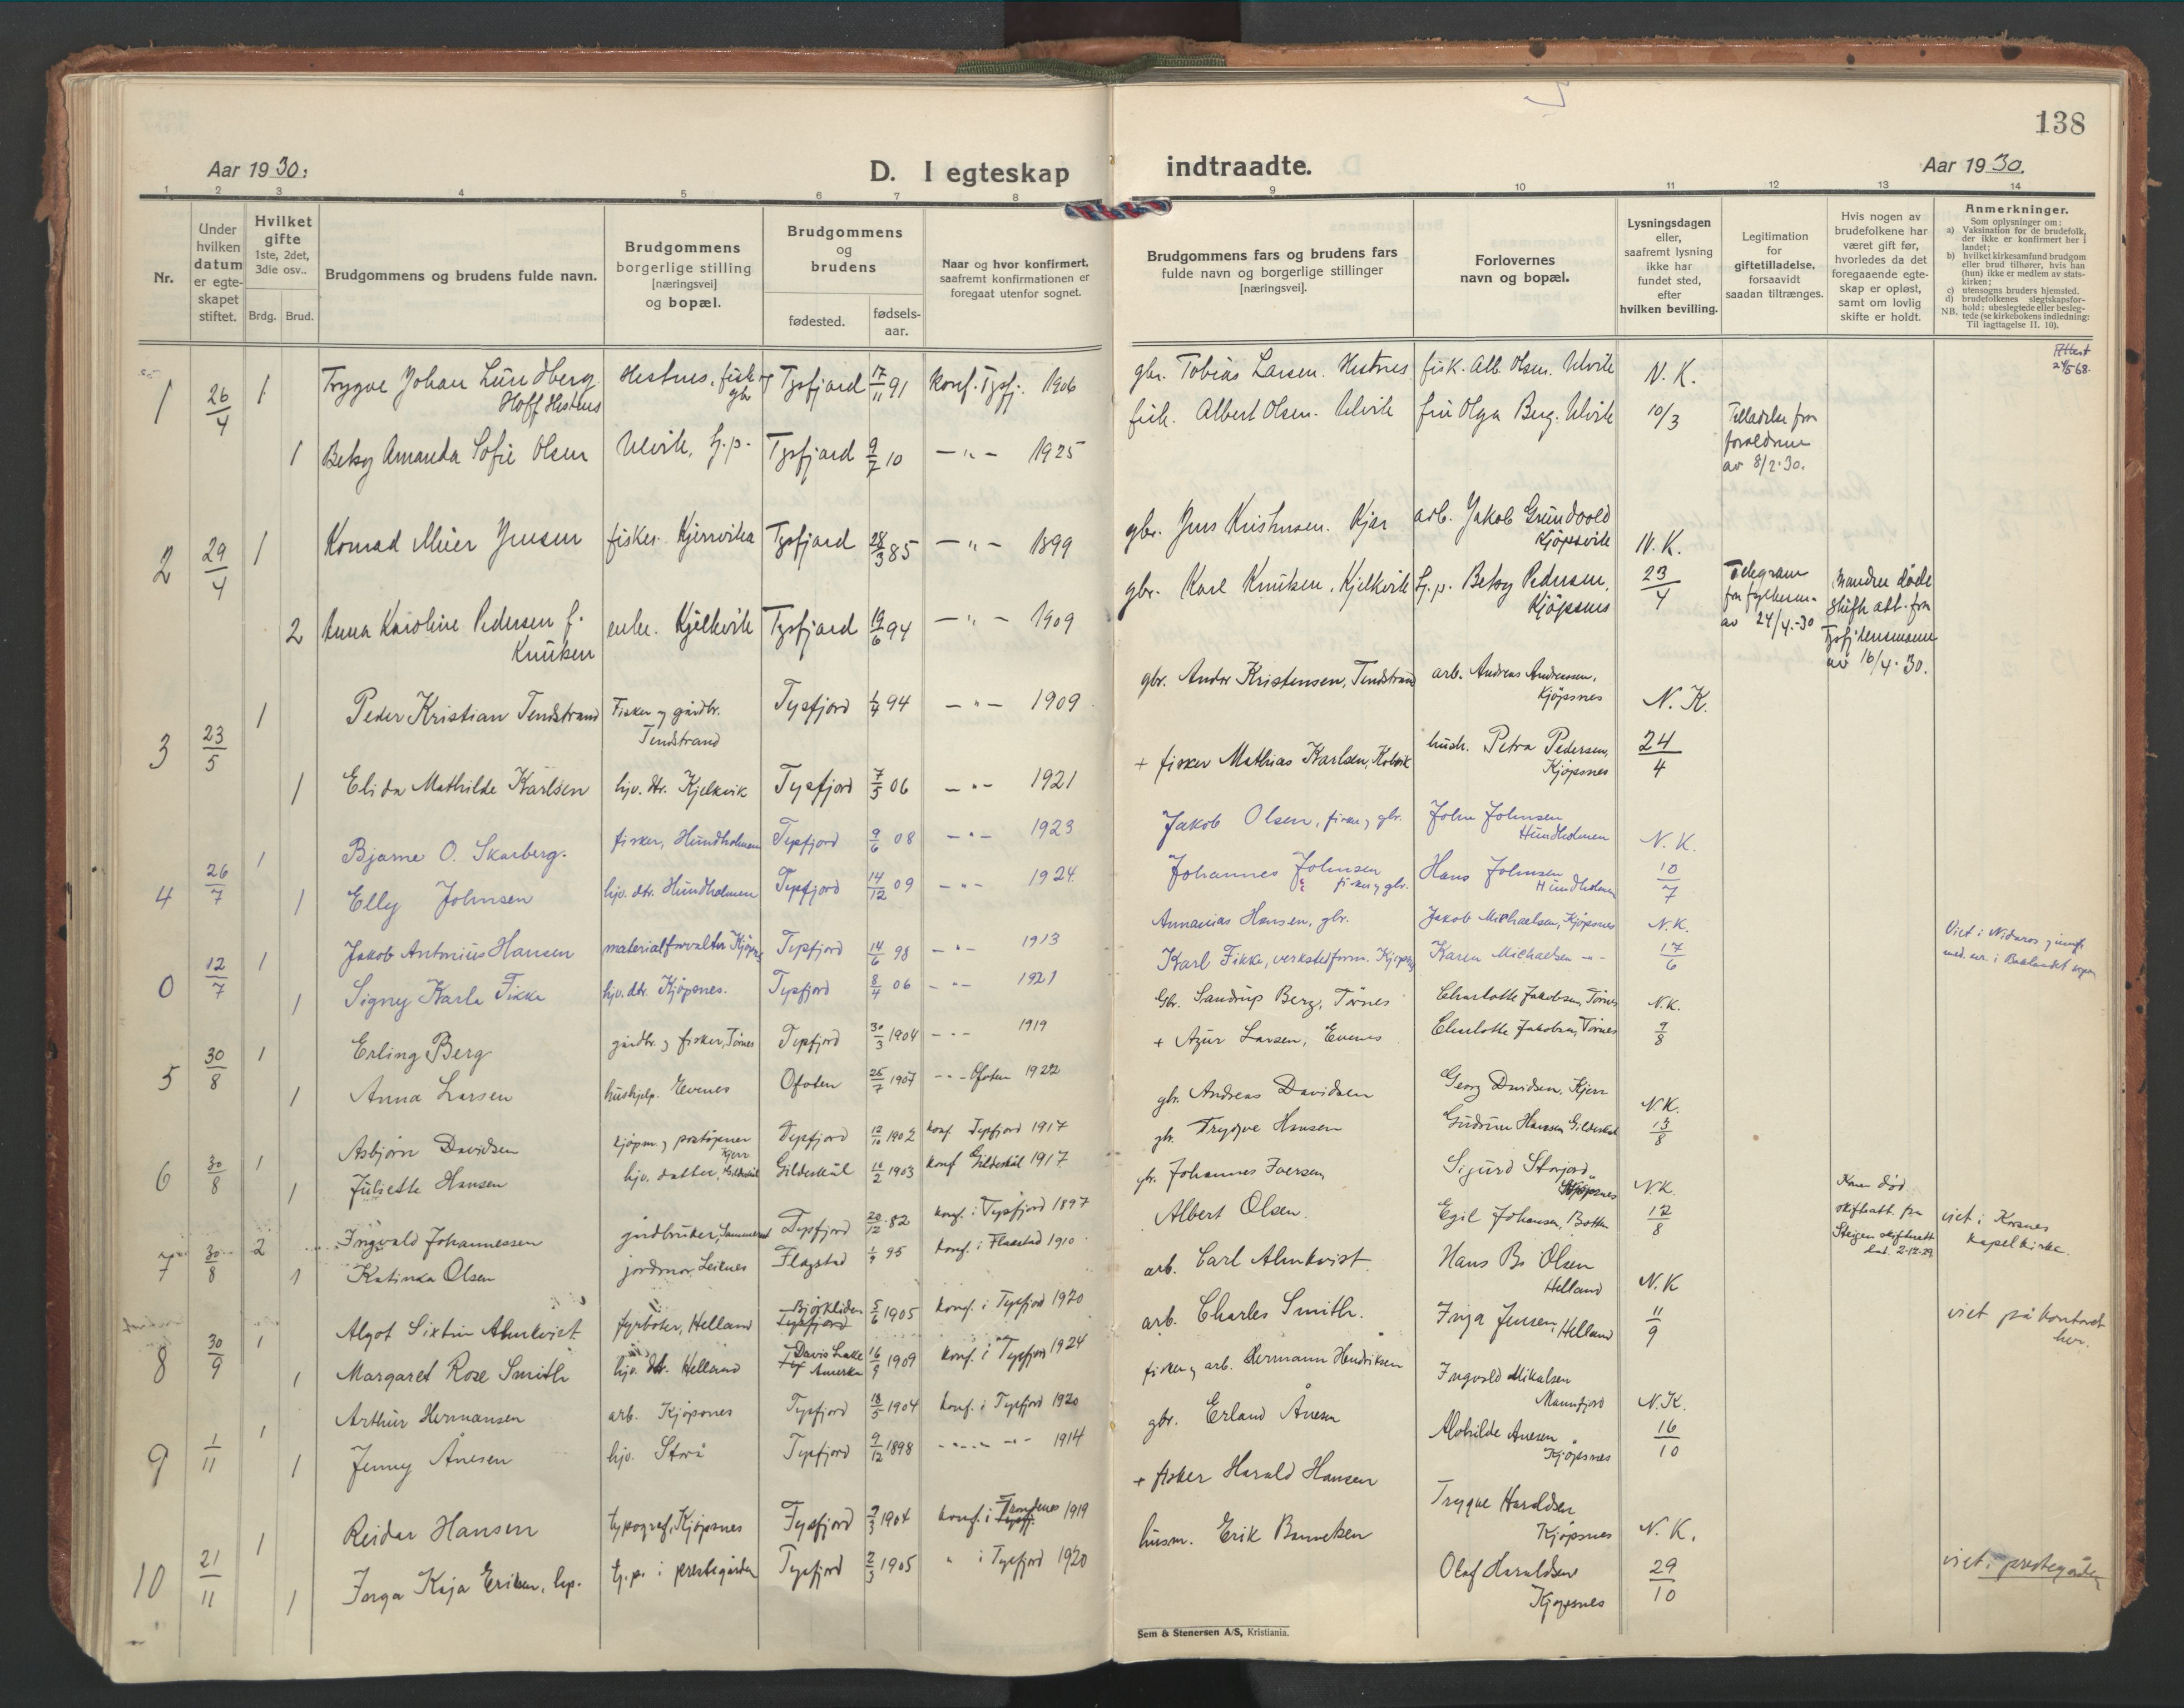 138
Aar 1930.
D. I egteskap indtraadte.
Aar 1930.
1 2 3 4 5 6 7 8 9 10 11 12 13 14
Nr.
Under hvilken datum er egteskapet stiftet.
Hvilket gifte 1ste, 2det, 3die osv..
Brdg. Brud.
Brudgommens og brudens fulde navn.
Brudgommens borgerlige stilling [næringsvei] og bopæl.
Brudgommens og brudens
fødested.
fødsels-aar.
Naar og hvor konfirmert, saafremt konfirmationen er foregaat utenfor sognet.
Brudgommens fars og brudens fars fulde navn og borgerlige stillinger [næringsvei].
Forlovernes navn og bopæl.
Lysningsdagen eller, saafremt lysning ikke har fundet sted, efter hvilken bevilling.
Legitimation for giftetilladelse, forsaavidt saadan tiltrænges.
Hvis nogen av brudefolkene har været gift før, hvorledes da det foregaaende egteskap er opløst, samt om lovlig skifte er holdt.
Anmerkninger.
Som oplysninger om:
a) Vaksination for de brudefolk, der ikke er konfirmert her i landet;
b) hvilket kirkesamfund brudgom eller brud tilhører, hvis han (hun) ikke er medlem av statskirken;
c) utensogns bruders hjemsted.
d) brudefolkenes slegtskapsforhold: ubeslegtede eller beslegtede (se kirkebokens indledning: Til iagttagelse II. 10).
NB.
1 26/4 1 Trygve Johan Lundberg Hoff Hestnes Hestnes, fisk. og gbr. Tysfjord 17/11 91 konf. Tysfj. 1906 gbr. Tobias Larsen. Hestnes fisk. Alb. Olsen. Ulvik N. K.
Attest
1 Betsy Amanda Sofie Olsen Ulvik, tj.p. Tysfjord 9/7 10 — " — 1925 fisk. Albert Olsen. Ulvik fru Olga Berg. Ulvik 10/3 Tilladelse fra foreldrene av 8/2-30.
2 29/4 1 Konrad Meier Jensen fisker Kjerrvika Tysfjord 28/3 85 — " — 1899 gbr. Jens Kristensen. Kjær arb. Jakob Grundvold Kjöpsvik N. K.
2 Anna Karoline Pedersen f. Knutsen enke. Kjelkvik Tysfjord 19/6 94 — " — 1909 gbr. Karl Knutsen, Kjelkvik tj.p. Betsy Pedersen, Kjöpsnes 23/4 Telegram fra fylkesm. av 24/4-30 Manden døde skifte att. fra Tysfj lensmann av 16/4-30.
3 23/5 1 Peder Kristian Tendstrand Fisker og gårdbr. Tendstrand Tysfjord 1/4 94 — " — 1909 gbr. Andor Kristensen, Tendstrand arb. Andreas Andreassen, Kjöpsnes N. K.
1 Elida Mathilde Karlsen hjv. dtr. Kjelkvik Tysfjord 7/5 06 — " — 1921 + fisker Mathias Karlsen, Kolvik hush. Petra Pedersen, Kjöpsnes 24/4
4 26/7 1 Bjarne O. Skarberg. fisker, Hundholmen Tysfjord 9/6 08 — " — 1923 Jakob Olsen, fisker og gbr. John Johnsen Hundholmen N. K.
1 Elly Johnsen hjv. dtr. Hundholmen Tysfjord 14/12 09 — " — 1924. Johannes Johnsen fisker og gbr. Hans Johnsen Hundholmen 10/7
0 12/7 1 Jakob Antonius Hansen materialforvalter Kjöpsn. Tysfjord 14/6 98 — " — 1913 Annanias Hansen, gbr. Jakob Michaelsen, Kjöpsnes N. K.
1 Signy Karla Fikke hjv. dtr. Kjöpsnes. Tysfjord 8/4 06 — " — 1921 Karl Fikke, verkstedform. Kjöpsn. Karen Michaelsen — " — 17/6
5 30/8 1 Erling Berg gårdbr. og fisker, Törnes Tysfjord 30/3 1904 — " — 1919 Gbr. Sandrup Berg, Törnes Charlotte Jakobsen, Törnes N. K.
1 Anna Larsen hushjelp. Evenes Ofoten 25/7 1907 — " — Ofoten 1922 + Azur Larsen, Evenes Charlotte Jakobsen, Törnes 9/8
6 30/8 1 Asbjörn Davidsen kjöpm. og postöpner Kjerr Tysfjord 12/10 1902 konf Tysfjord 1917 gbr. Andreas Davidsen Georg Davidsen, Kjerr N. K.
1 Juliette Hansen hjv. datter, Gildeskål Gildeskål 10/2 1903 konf Gildeskål 1917 gbr. Tryggve Hansen Gudrun Hansen Gildeskål 13/8
7 30/8 2 Ingvald Johannessen gårdbruker, Tysfjord 20/12 82 konf. i Tysfjord 1897 gbr. Johannes Iversen Sigurd Storjord, Kjöpsnes N. K. Konen död skifteatt. fra Steigen skifterett dat. 2-12-29 viet i Korsnes kapelkirke.
1 Katinka Olsen jordmor, Leiknes Flagstad 95 konf. i Flakstad 1910 Albert Olsen. Egil Johansen, Botten 12/8
8 30/9 1 Algot Sixtin Almkvist fyrböter, Helland Björkliden Tysfjord 5/6 1905 konf. i Tysfjord 1920 arb. Carl Almkvist. Hans B. Olsen Helland N. K viet på kontoret her.
1 Margaret Rose Smith hjv. dtr. Helland Davis Lake Amerika 16/9 1909 konf. i Tysfjord 1924 arb. Charles Smith. Inga Jensen, Helland 11/9
9 1/11 1 Arthur Hermansen arb. Kjöpsnes Tysfjord 18/5 1904 konf. i Tysfjord 1920 fisker og arb. Hermann Hendriksen Ingvald Mikalsen Mannfjord N. K.
1 Jenny Ånesen hjv. Storå Tysfjord 9/12 1898 — " — 1914 gbr. Erland Ånesen Alvhilde Anesen Kjöpsnes 16/10
10 21/11 1 Reidar Hansen typograf, Kjöpsnes Tysfjord 7/3 1904 konf. i Trondenes 1919 + fisker Harald Hansen Trygve Haraldsen Kjöpsnes N. K. viet i prestegården
1 Kaja Eriksen, lap. tj.p. i prestegården Tysfjord 2/3 1905 " i Tysfjord 1920 husm. Erik Olaf Haraldsen Kjöpsnes 29/10
Sem & Stenersen A/S, Kristiania.